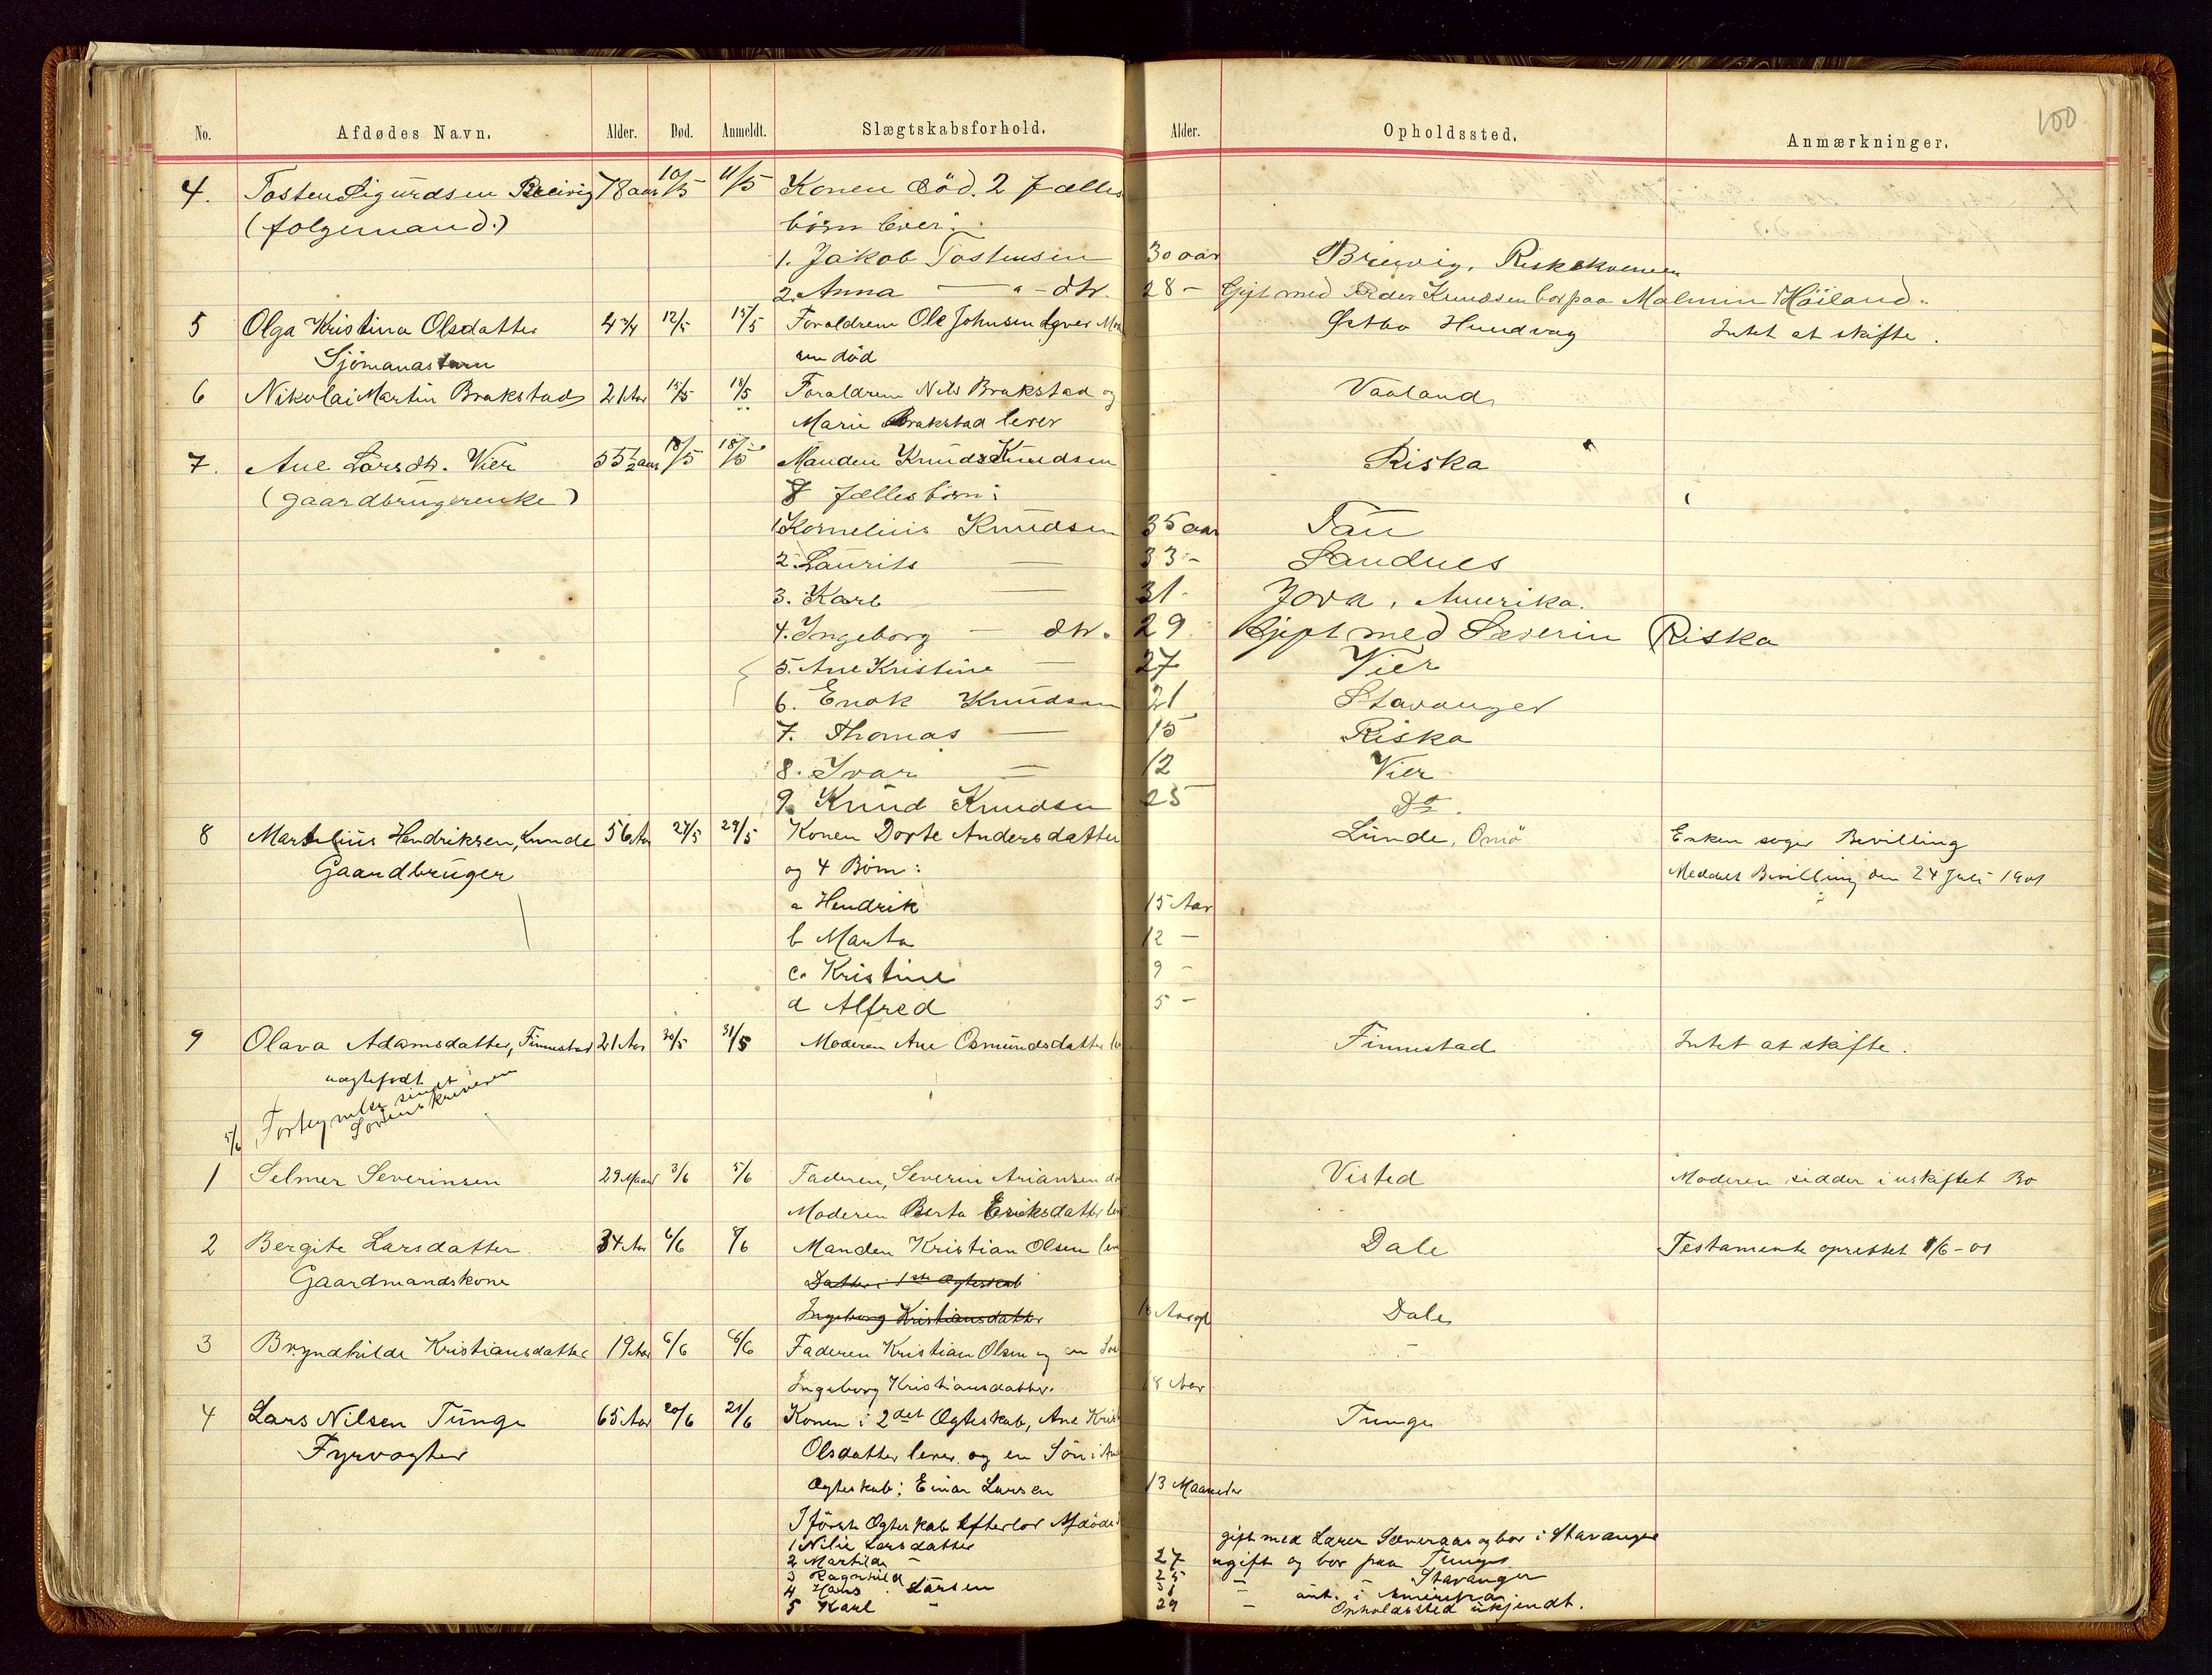 100
No. Afdødes Navn. Alder. Død. Anmeldt. Slægtskabsforhold. Alder. Opholdssted. Anmærkninger.
4. Tosten Sigurdsen Breivig 78 aar 10/5 11/5 Konen død. 2 fælles
(folgemand.) børn lever:
1. Jakob Tostensen 30 aar Breivig, Riskekvernen
2. Anna — " — dtr. 28 – Gift med Peder Knudsen bor paa Malmin i Høiland.
5 Olga Kristina Olsdatter 4 3/4 12/5 15/5 Foraldrene Ole Johnsen lever Mo Østbø Hundvag Intet at skifte.
Sjömandsbarn en död
6 Nikolai Martin Brakstad 21 Aar 15/5 18/5 Foraldrene Nils Brakstad og Vaaland
Marie Brakstad lever
7. Ane Larsdtr. Vier 55 1/2 aar 18/5 18/5 Manden Knud Knudsen Riska
(gaardbrugerenke) 8 fællesbørn:
1. Kornelius Knudsen 35 aar Tau
2. Laurits — 33 – Sandnes
3. Karl — 31 – Jova, Amerika.
4. Ingeborg — dtr. 29 Gift med Severin Riska
5. Ane Kristine — 27 Vier
6. Enok Knudsen 21 Stavanger
7. Thomas — 15 Riska
8. Ivar — 12 Vier
9. Knud Knudsen 25 Do.
8 Martelius Hendriksen, Lunde 56 Aar 27/5 29/5 Konen Dorte Andersdatter Lunde, Omö Enken søger Bevilling
Gaardbruger og 4 Børn: Meddelt Bevilling den 24 Juli 1901
a Hendrik 15 Aar
b Marta 12 –
c. Kristine 9 –
d Alfred 5 –
9 Olava Adamsdatter, Finnestad 21 Aar 30/5 31/5 Moderen Ane Osmundsdatter le Finnestad Intet at skifte.
uægtefødt
5/6 Fortegnelse sendt
Sorenskriveren
1 Selmer Severinsen 29 Maan 3/6 5/6 Faderen, Severin Ariansen dö Visted Moderen sidder i uskiftet Bo
Moderen Berta Eriksdatter lev
2 Bergite Larsdatter 34 Aar 6/6 8/6 Manden Kristian Olsen lev Dale Testamente oprettet 1/6-01
Gaardmandskone Datter i 1ste Ægteskab
Ingeborg Kristiansdatter 18 Aar gl Dale
3 Bryndhilde Kristiansdatter 19 Aar 6/6 8/6 Faderen Kristian Olsen og en Sös
Ingeborg Kristiansdatter. 18 Aar
4 Lars Nilsen Tunge 65 Aar 20/6 21/6 Konen i 2det Ægteskab, Ane Krist Tunge
Fyrvogter Olsdatter lever og en Sön i An
Ægteskab; Einar Larsen 13 Maaneder
I förste Ægteskab efterlod Afdöde
1 Nilie Larsdatter gift med Lærer Sæveraas og bor i Stavanger
2 Martilde – 27 ugift og bor paa Tunge
3 Ragnhild 25 – – Stavanger
4 Hans Larsen 31 – ant. i Amerika
5 Karl – 29 – Opholdssted ukjendt.